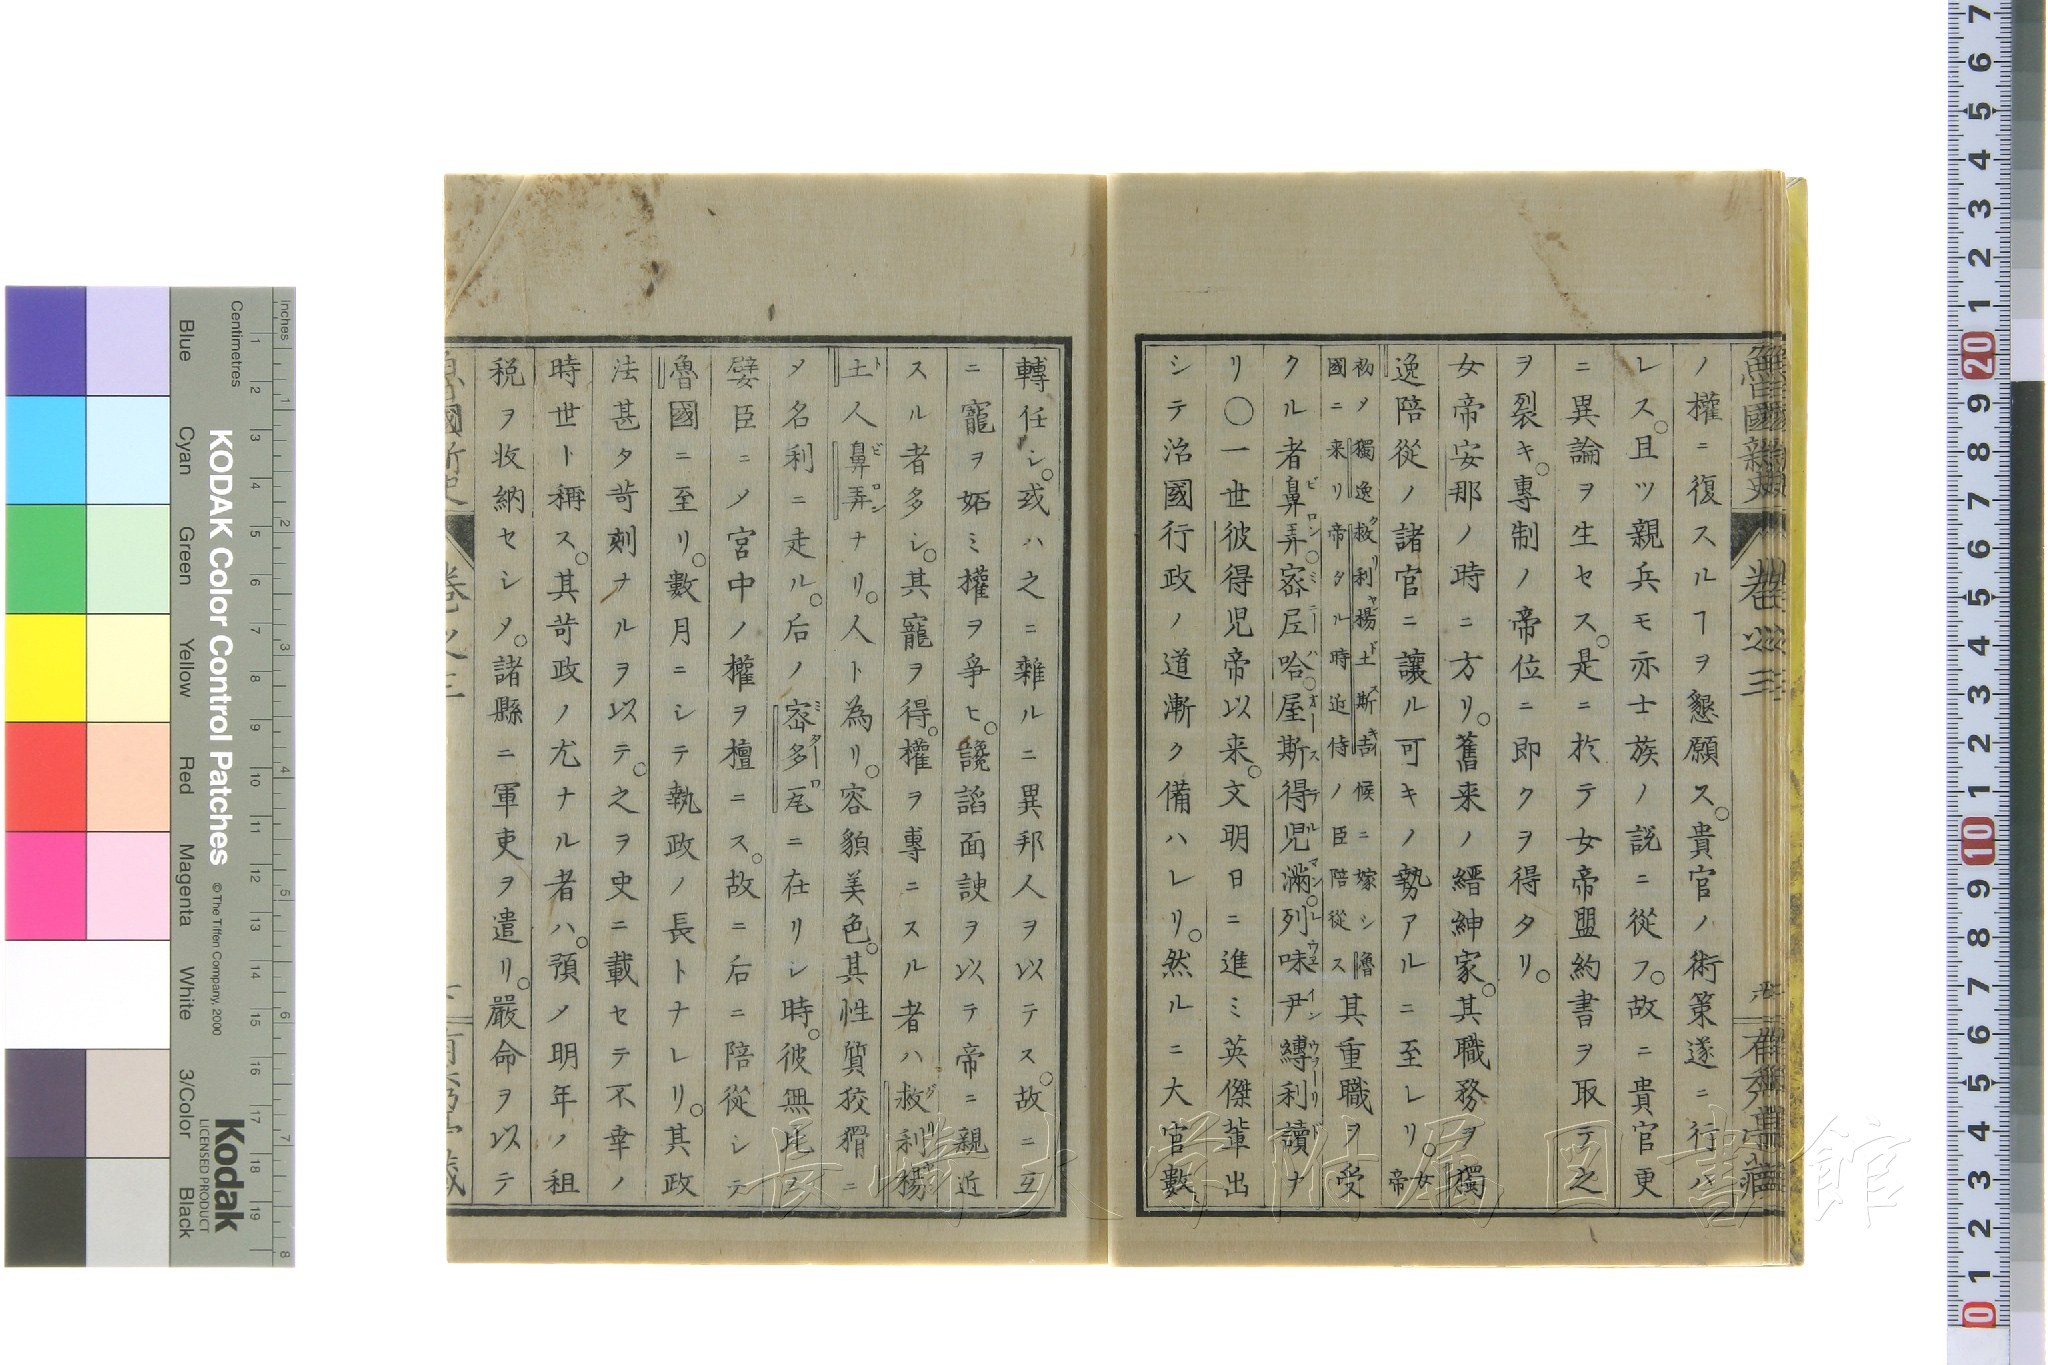 ノ權ニ復スルヿヲ懇願ス。貴官ノ術策遂ニ行ハ
レス。且ツ親兵モ亦士族ノ説ニ從フ。故ニ貴官更
ニ異論ヲ生セス。是ニ於テ女帝盟約書ヲ取テ之
ヲ裂キ。專制ノ帝位ニ即クヲ得タリ。
女帝安那ノ時ニ方リ。舊来ノ縉紳家。其職務ヲ獨
逸陪從ノ諸官ニ讓ル可キノ勢アルニ至レリ。女帝
初メ獨逸救利楊土斯吉候ニ嫁シ魯
國ニ来リ帝タル時近侍ノ臣陪從ス
其重職ヲ受
クル者鼻弄。密尼哈。屋斯得児滿。列味尹縛利讀ナ
リ〇一世彼得児帝以来。文明日ニ進ミ英傑軰出
シテ治國行政ノ道漸ク備ハレリ。然ルニ大官數
轉任シ。或ハ之ニ雜ルニ異邦人ヲ以テス。故ニ互
ニ寵ヲ妬ミ權ヲ爭ヒ。讒謟面諛ヲ以テ帝ニ親近
スル者多シ。其寵ヲ得。權ヲ專ニスル者ハ救利楊
土人鼻弄ナリ。人ト為リ。容貌美色。其性質狡猾ニ
〆名利ニ走ル。后ノ密多尾ニ在リシ時。彼無比ノ
嬖臣ニ〆宮中ノ權ヲ檀ニス。故ニ后ニ陪從シテ
魯國ニ至リ。數月ニシテ執政ノ長トナレリ。其政
法甚タ苛刻ナルヲ以テ。之ヲ史ニ載セテ不幸ノ
時世ト稱ス。其苛政ノ尤ナル者ハ。預ノ明年ノ租
税ヲ收納セシメ。諸縣ニ軍吏ヲ遣リ。嚴命ヲ以テ
卷之三
KODAK Color Control Patches
© The Tiffen Company, 2000
Kodak
LICENSED PRODUCT
Inches
Centimetres
Blue
Cyan
Green
Yellow
Red
Magenta
White
3/Color
Black
長崎大学附属図書館